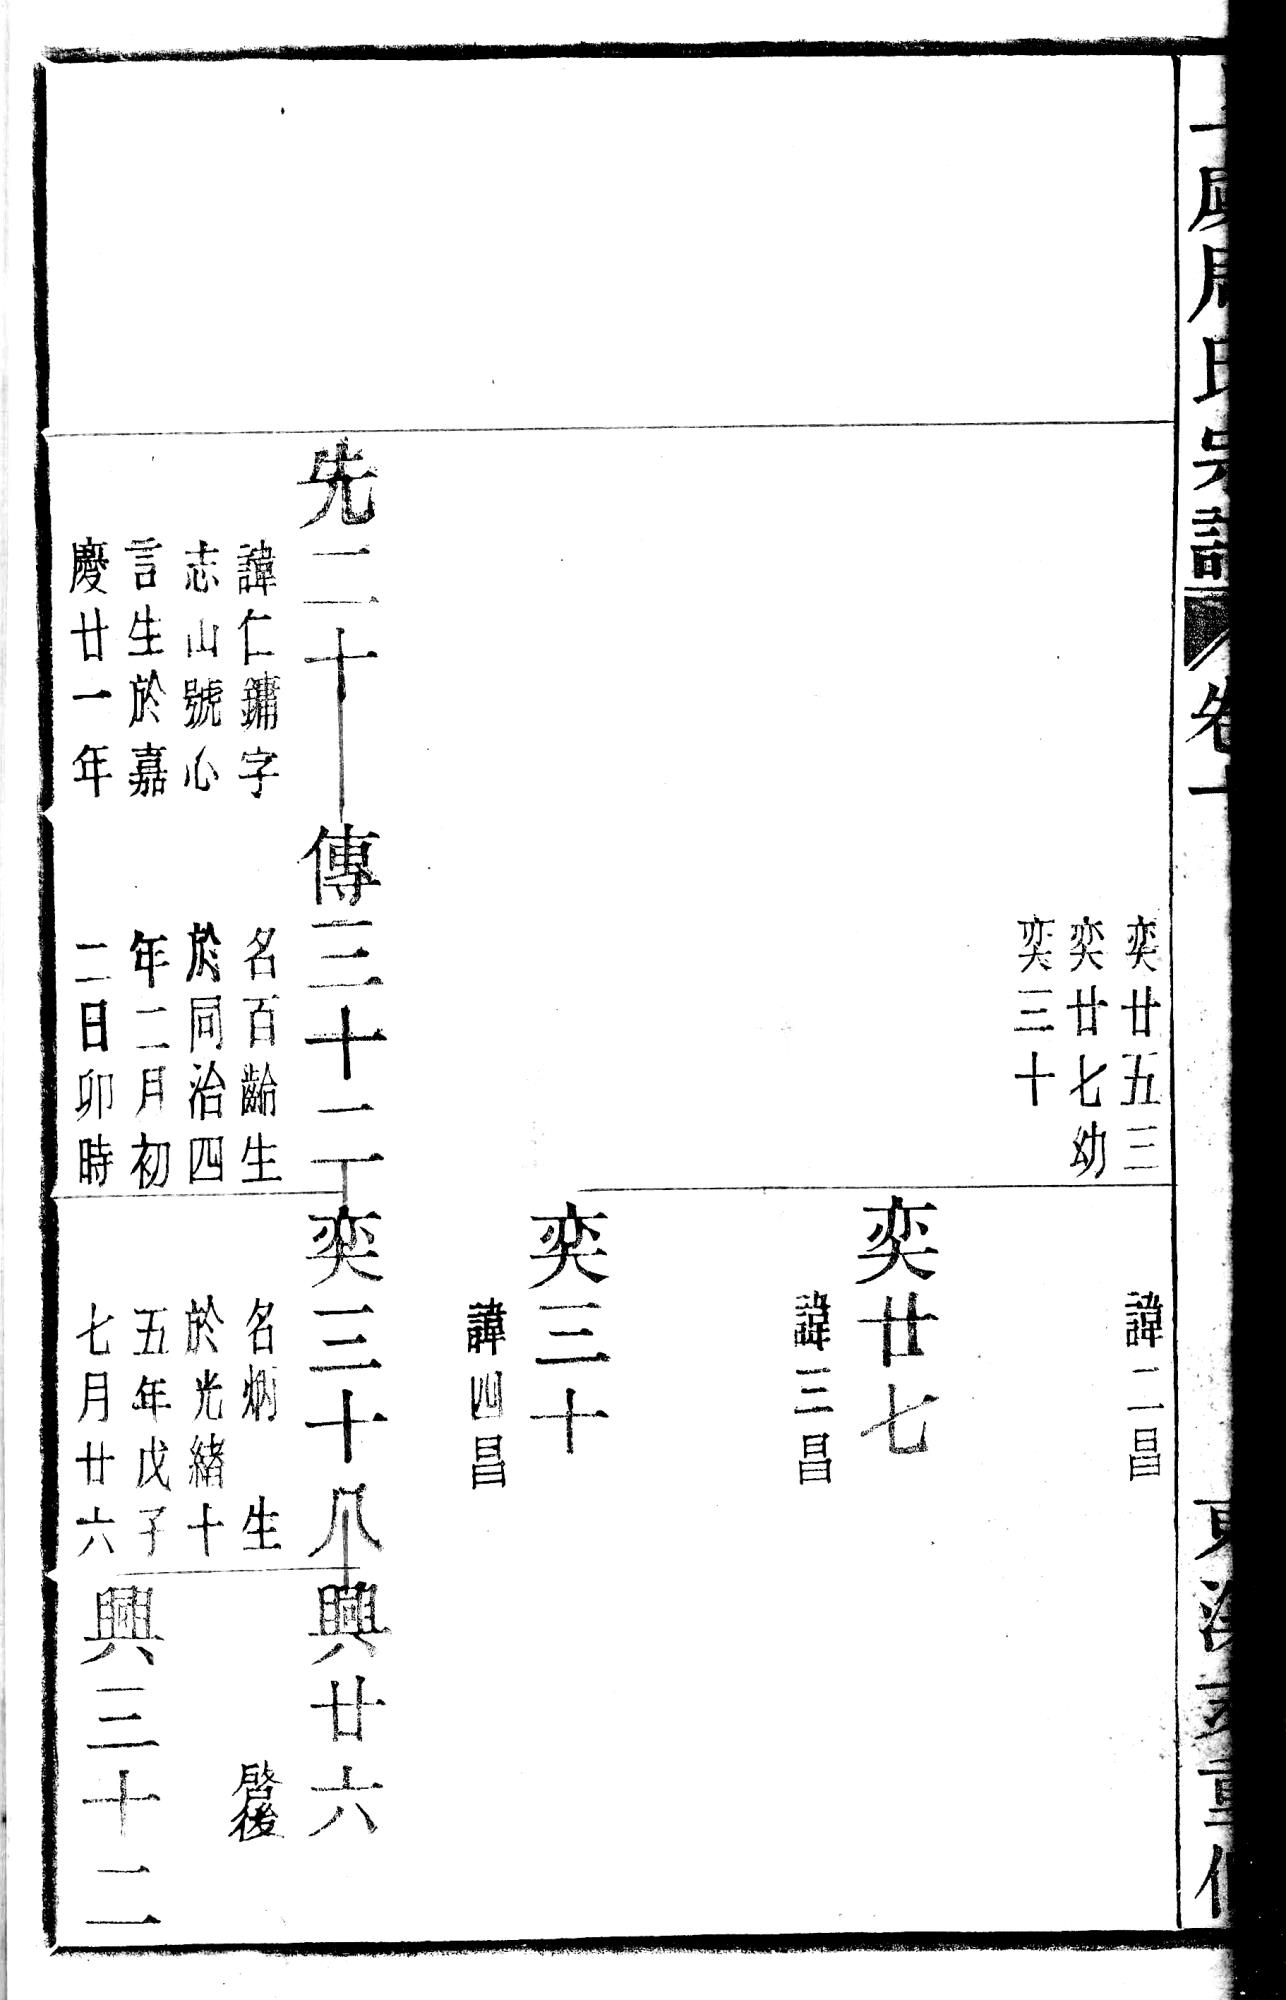 周氏宗譜 卷十
重修
奕廿五三
奕廿七幼
奕三十
諱二昌
奕廿七
諱三昌
奕三十
諱四昌
先二十
諱仁鏞字
志山號心
言生於嘉
慶廿一年
傳三十二
名百齡生
於同治四
年二月初
二日卯時
奕三十八
名炳 生
於光緒十
五年戊子
七月廿六
興廿六
啓後
興三十二